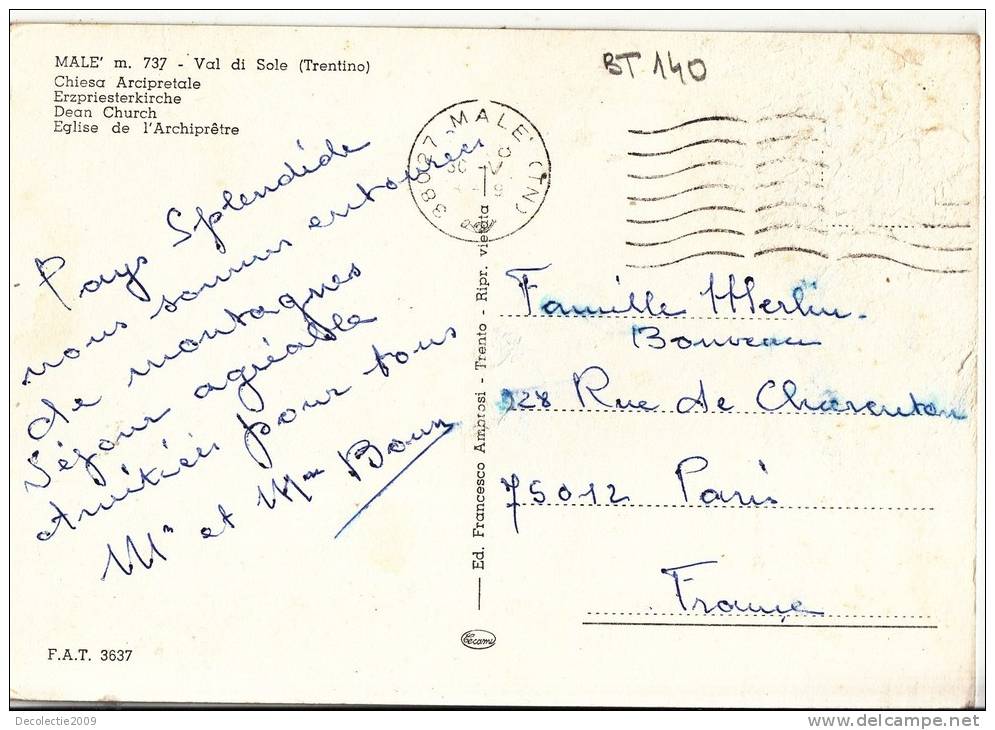 MALE' m. 737 - Val di Sole (Trentino)
Chiesa Arcipretale
Erzpriesterkirche
Dean Church
Eglise de l'Archiprêtre
BT 140
38027 MALE' (TN)
Pays Splendide
nous sommes entourés
de montagnes
Séjour agréable
Amitiés pour tous
Mr et Mme
Famille
228 Rue de Charenton
75012 Paris
France
Ed. Francesco Ambrosi - Trento - Ripr. vietata
Cecami
F.A.T. 3637
Decolectie2009
www.delcampe.net